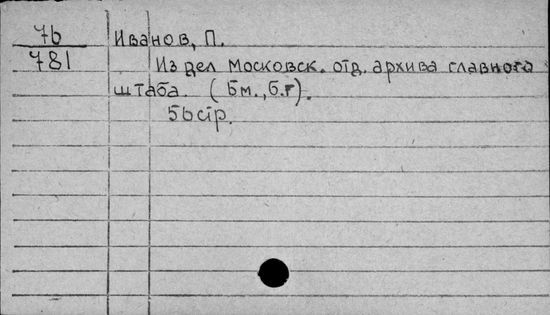 7б
781
Иванов, П.
Из дел московск. отд. архива главного
штаба. (Бм., б.г).
56 стр.